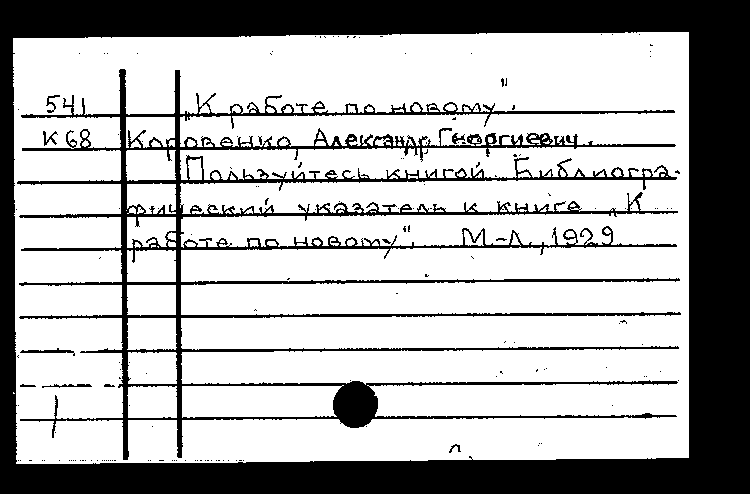 541 „К работе по новому".
К 68 Коровенко, Александр Георгиевич.
Пользуйтесь книгой. Библиогра-
фический указатель к книге „К
работе по новому". М.-Л., 1929